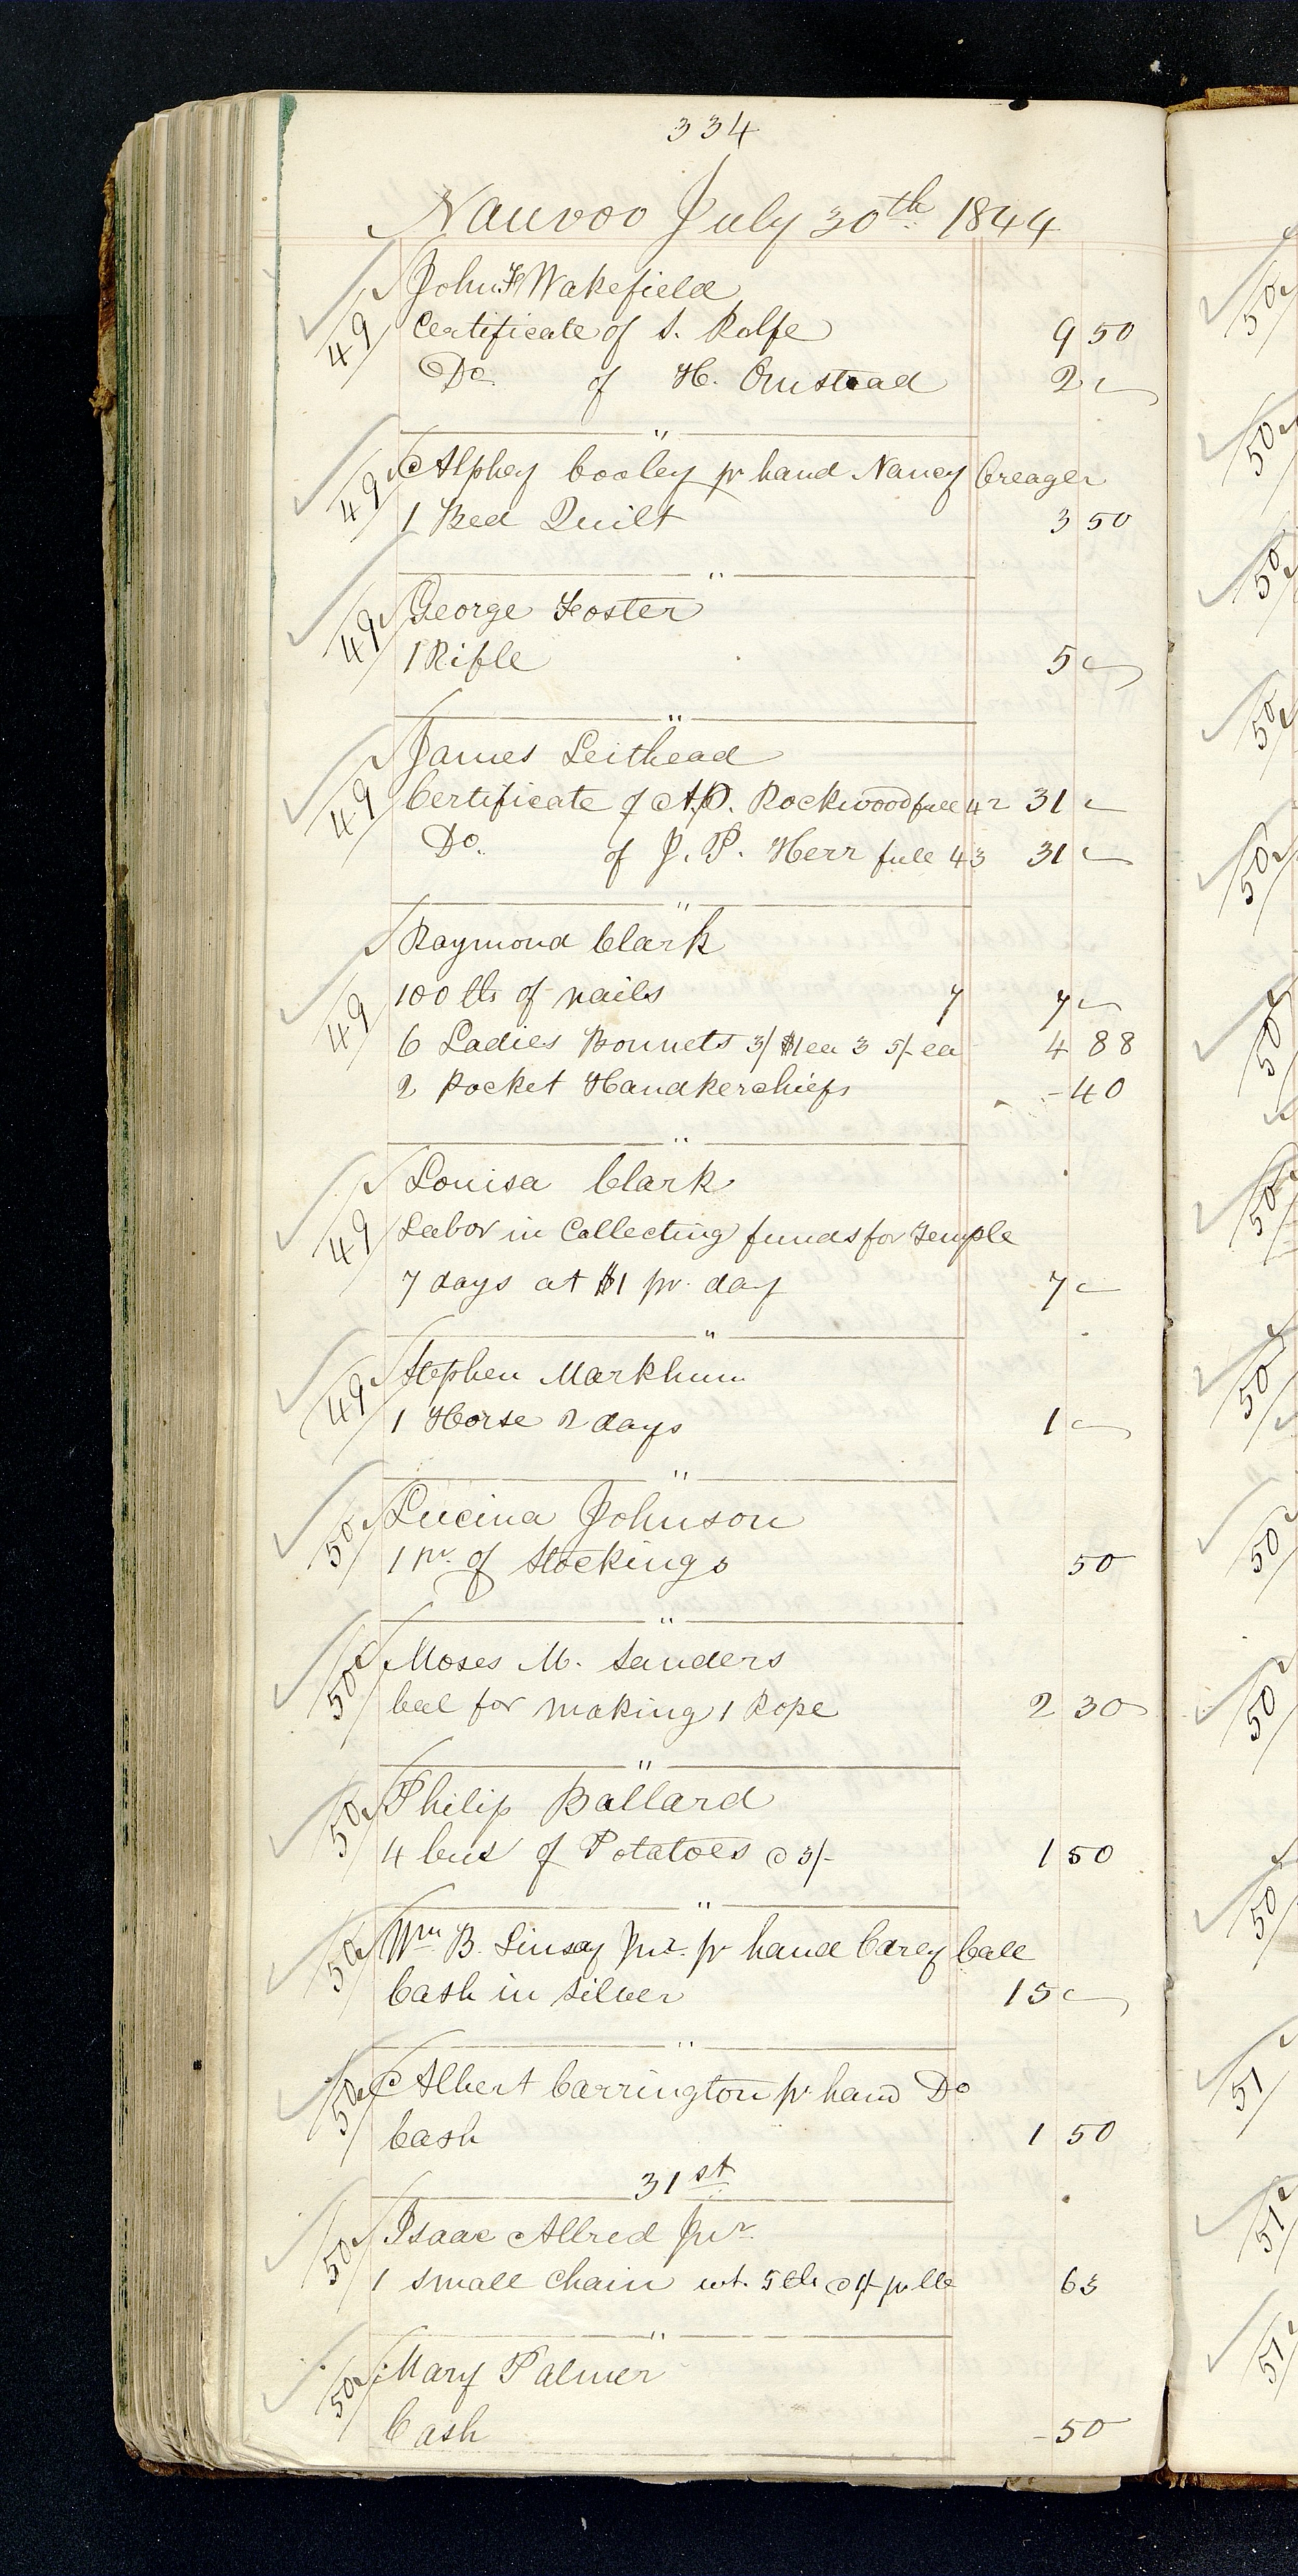 334
Nauvoo July 30th 1844
49 John F Wakefield
Certificate of S. Rolfe 9 50
Do of H. Omstead 2 "
"
49 Alphey Cooley pr hand Nancy Creager
1 Bed Quilt 3 50
"
49 George Foster
1 Rifle 5
"
49 James Leithead
Certificate of A.P. Rockwood full 42 31
Do. of J. P. Herr full 43 31
"
Raymond Clark
49 100 lbs of nails 7 7
6 Ladies Bonnets 3/ $1 ea 3 5/- ea 4 88
2 Pocket Handkerchiefs - 40
"
Louisa Clark
49 Labor in Collecting funds for Temple
7 days at $1 pr. day 7
"
49 Stephen Markhum
1 Horse 2 days 1
"
50 Lucina Johnson
1 pr. of Stockings 50
"
50 Moses M. Sanders
bal for making 1 Rope 2 30
"
50 Philip Ballard
4 bus of Potatoes @ 3/- 1 50
"
50 Wm B. Linsay Jnr. pr hand Carey Call
Cash in silver 15
"
50 Albert Carrington pr hand Do
Cash 1 50
31st
50 Isaac Allred Jnr
1 small chain wt. 5 lb @ 1/- pr lb 63
"
50 Mary Palmer
Cash - 50
50
50
50
50
50
50
50
50
50
50
50
51
51
51